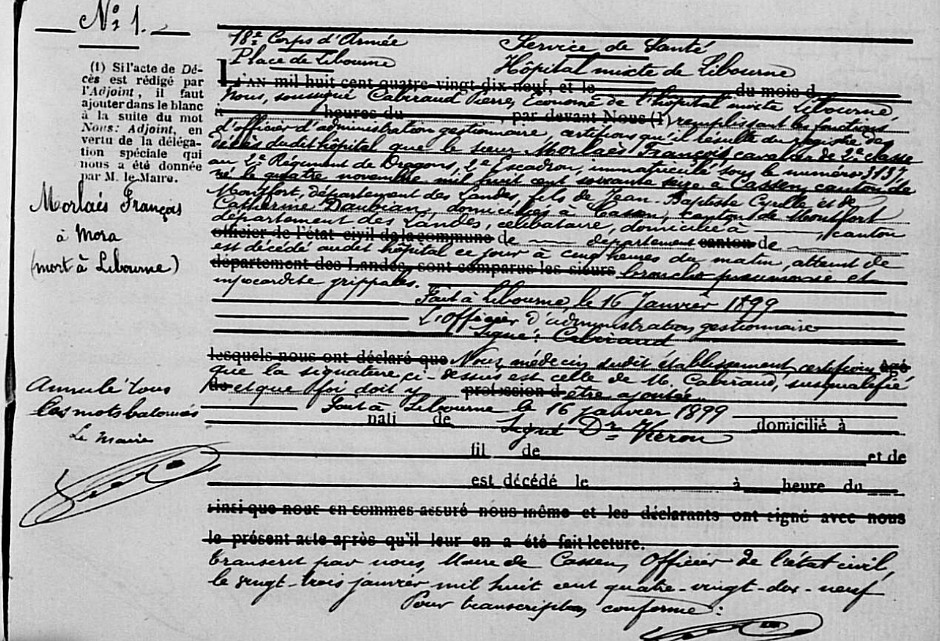 N° 1.
(1) Si l'acte de Dé-
cès est rédigé par
l'Adjoint, il faut
ajouter dans le blanc
à la suite du mot
Nous: Adjoint, en
vertu de la déléga-
tion spéciale qui
nous a été donnée
par M. le Maire.
Morlaës François
à Mora
(mort à Libourne)
Annulé tous
les mots batonnés
Le Maire
18e Corps d'Armée Service de Santé
Place de Libourne Hôpital mixte de Libourne
L'AN mil huit cent quatre-vingt dix neuf, et le du mois d
Nous, soussigné Cabiraud Pierre, Econome de l'hôpital mixte Libourne,
à heures du , par devant Nous (1) remplissant les fonctions
d'officier d'administration gestionnaire, certifions qu'il résulte du registre de
décès dudit hôpital que le sieur Morlaës François cavalier de 2e classe
au 2e Régiment de Dragons, 2e Escadron, immatriculé sous le numéro 3137
né le quatre novembre mil huit cent soixante seize à Cassen, canton de
Montfort, département des Landes, fils de Jean-Baptiste Cyrille et de
Catherine Daubian, domiciliés à Cassen, canton de Montfort
département des Landes, célibataire, domicilié à , canton
officier de l'état civil de la commune de département canton de
est décédé audit hôpital ce jour à cinq heures du matin, atteint de
département des Landes, sont comparus les sieurs broncho pneumonie et
myocardite grippales.
Fait à Libourne, le 16 Janvier 1899
L'Officier d'administration gestionnaire
Signé: Cabiraud
lesquels nous ont déclaré que Nous, médecin dudit établissement certifions âgé
que la signature ci-dessus est celle de M. Cabiraud, susqualifié
de et que foi doit profession d être ajoutée.
Fait à Libourne le 16 janvier 1899
nati de Signé Dr domicilié à
fil de et de
est décédé le à heure du
ainsi que nous en sommes assuré nous même et les déclarants ont signé avec nous
le présent acte après qu'il leur en a été fait lecture.
Transcrit par nous, Maire de Cassen, Officier de l'état civil,
le vingt-trois janvier mil huit cent quatre-vingt-dix-neuf
Pour transcription conforme: